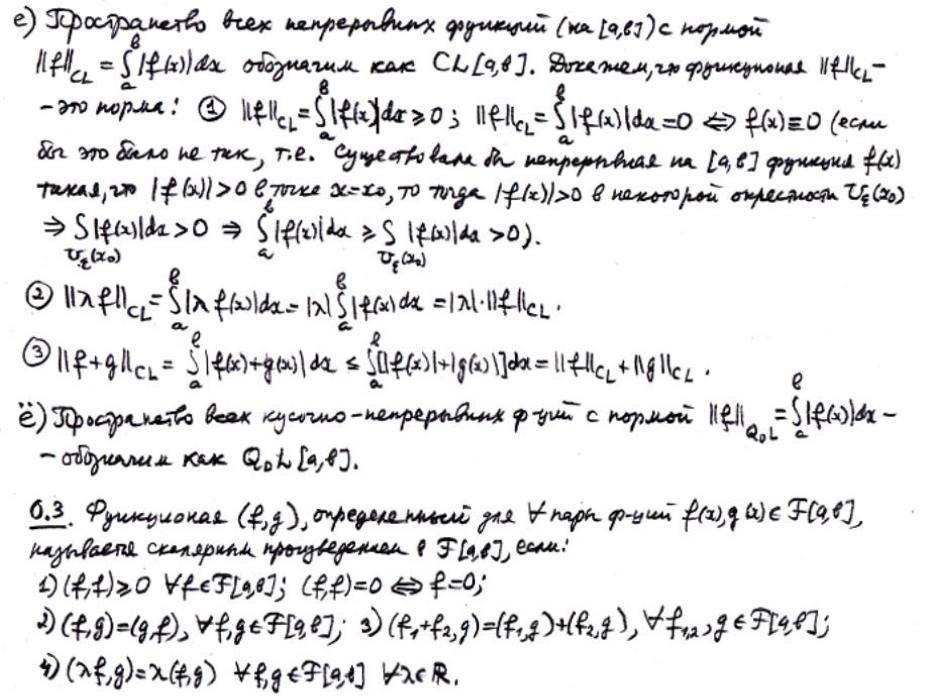 е) Пространство всех непрерывных функций (на [a,b]) с нормой
||f||_CL = ∫_a^b |f(x)|dx обозначим как CL[a,b]. Докажем, что функционал ||f||_CL –
– это норма: ① ||f||_CL = ∫_a^b |f(x)|dx ≥ 0; ||f||_CL = ∫_a^b |f(x)|dx = 0 ⇔ f(x)≡0 (если
бы это было не так, т.е. существовала бы непрерывная на [a,b] функция f(x)
такая, что |f(x)|>0 в точке x=x₀, то тогда |f(x)|>0 в некоторой окрестности U_ε(x₀)
⇒ ∫_{U_ε(x₀)} |f(x)|dx > 0 ⇒ ∫_a^b |f(x)|dx ≥ ∫_{U_ε(x₀)} |f(x)|dx > 0).
② ||λf||_CL = ∫_a^b |λf(x)|dx = |λ| ∫_a^b |f(x)|dx = |λ|·||f||_CL.
③ ||f+g||_CL = ∫_a^b |f(x)+g(x)|dx ≤ ∫_a^b [|f(x)|+|g(x)|]dx = ||f||_CL + ||g||_CL.
ё) Пространство всех кусочно-непрерывных ф-ций с нормой ||f||_{Q₀L} = ∫_a^b |f(x)|dx –
– обозначим как Q₀L[a,b].
О.3. Функционал (f,g), определенный для ∀ пары ф-ций f(x),g(x)∈F[a,b],
называется скалярным произведением в F[a,b], если:
1) (f,f)≥0 ∀f∈F[a,b]; (f,f)=0 ⇔ f=0;
2) (f,g)=(g,f), ∀f,g∈F[a,b]; 3) (f₁+f₂,g)=(f₁,g)+(f₂,g), ∀f₁,₂,g∈F[a,b];
4) (λf,g)=λ(f,g) ∀f,g∈F[a,b] ∀λ∈R.